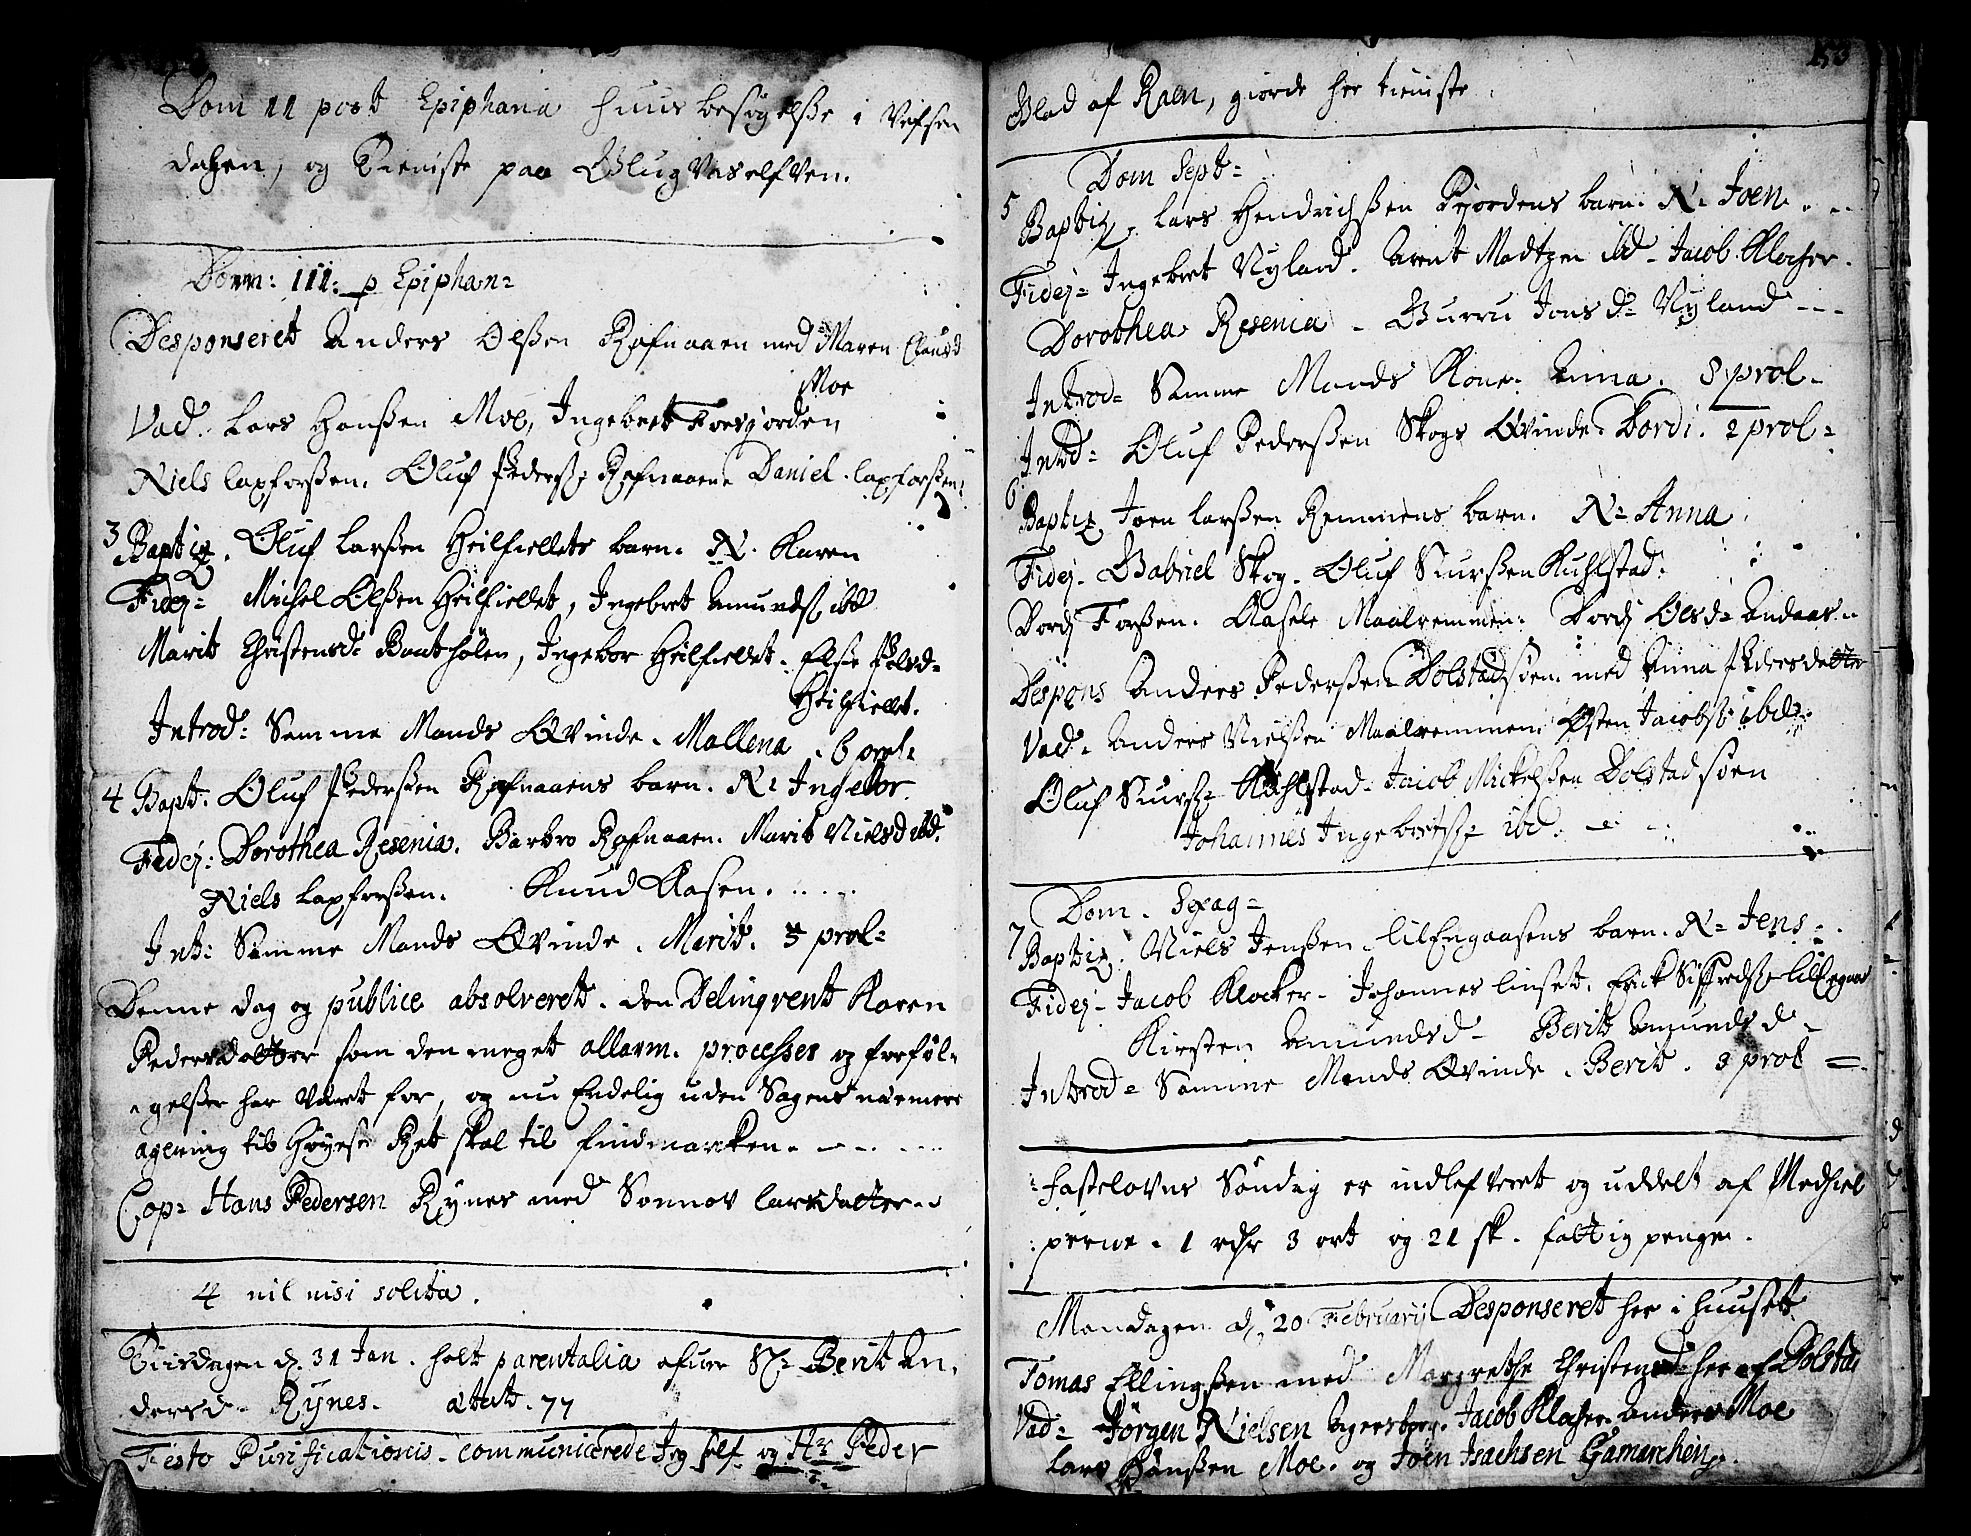 Dom 11 post Epiphania huus besøgelsse i Vefsen
dahlen, og Tieniste paa Glugvaselfven.
Dom: 111: p Epiphan=
Desponseret Anders Olssen Rafnaaen med Maren Clausd
Moe
Vad. Lars Hanssen Moe, Ingebret Forsjorden
Niels laxforssen. Oluf Pederss: Rafnaaen. Daniel laxforssen.
3 Baptiz. Oluf Larssen Heilfiellets barn. N. Karen
Fidej= Michel Olssen Heilfiellet, Ingebret Amundss. ibd
Marit Christensd= Bontholen, Ingebor Heilfiellet. Else Pedsd=
Heilfiellet.
Introd: Samme Mands Qvinde. Mallena. 6 prol=
4 Bapt. Oluf Pederssen Rafnaaens barn. N= Ingebor
Fidej: Dorothea Resenia. Barbro Rafnaaen. Marit Nielsd ibd.
Niels Laxforssen. Knud Aasen.
Int: Samme Mands Qvinde. Marit. 5 prol=
Denne dag og publice absolveret. den Delinqvent Karen
Pedersdatter som den meget allarm. processer og forføl=
gelsser har været for, og nu Endelig uden Sagens nærmere
ageering til Høyeste Ret skal til findmarken.
Cop= Hans Pedersen Rynes med Sonnov larsdatter.
4 nil nisi solita.
Tiisdagen d. 31 Jan. holt parentalia ofver Sl= Berit An.
dersd. Rynes. ætat. 77
Festo Purificationis. communicerede Jeg self og Hr Peder
153
Blad af Raen, giorde her tieniste.
Dom Sept=
5 Baptiz. Lars Hendrichssen Fjordens barn. N. Joen.
Fidej= Ingebret Nyland. Arent Madtzen ibd. Jacob Klocher.
Dorothea Resenia. Gurru Jonsd= Nyland
Introd= Samme Mands Kone. Anna. 8 prol.
Introd= Oluf Pederssen Skogs Qvinde Dordi. 2 prol=
6 Baptiz Joen Larssen Remmens barn. N= Anna
Fidej. Gabriel Skog. Oluf Siurssen Kuhlstad.
Dordj Forssen. Aasele Maalremmen. Dordj Olsd= Andaas.
Despons Anders Pederssen Dolstadsøen. med Anna Pedersdatter
Vad. Anders Nielssen Maalremmen. Østen Jacobss: ibd.
Oluf Siurss= Kuhlstad. Jacob Mickelssen Dolstadsøen
Johannes Ingebretss= ibd.
Dom. Sexag=
7 Baptiz. Niels Jenssen. LilEngaasens barn. N= Jens
Fidej= Jacob Klocker. Johannes linset. Erick Siffredss= LilEngaas
Kirsten Amundsd= Berit Amundsd=
Introd= Samme Mands Qvinde. Berit. 3 prol
Fastelavns Søndag er indlefveret og uddelt af Medhiel
perne. 1 rdlr 3 ort og 21 sk. fattig penge.
Mandagen d. 20 Februarij Desponseret her i huuset
Tomas Ellingssen med Margrethe Christensd= her af Dolstad
Vad= Jørgen Nielsen Agersborg. Jacob Klocker. Anders Moe
Lars Hanssen Moe. og Joen Isachsen Gamarchen.